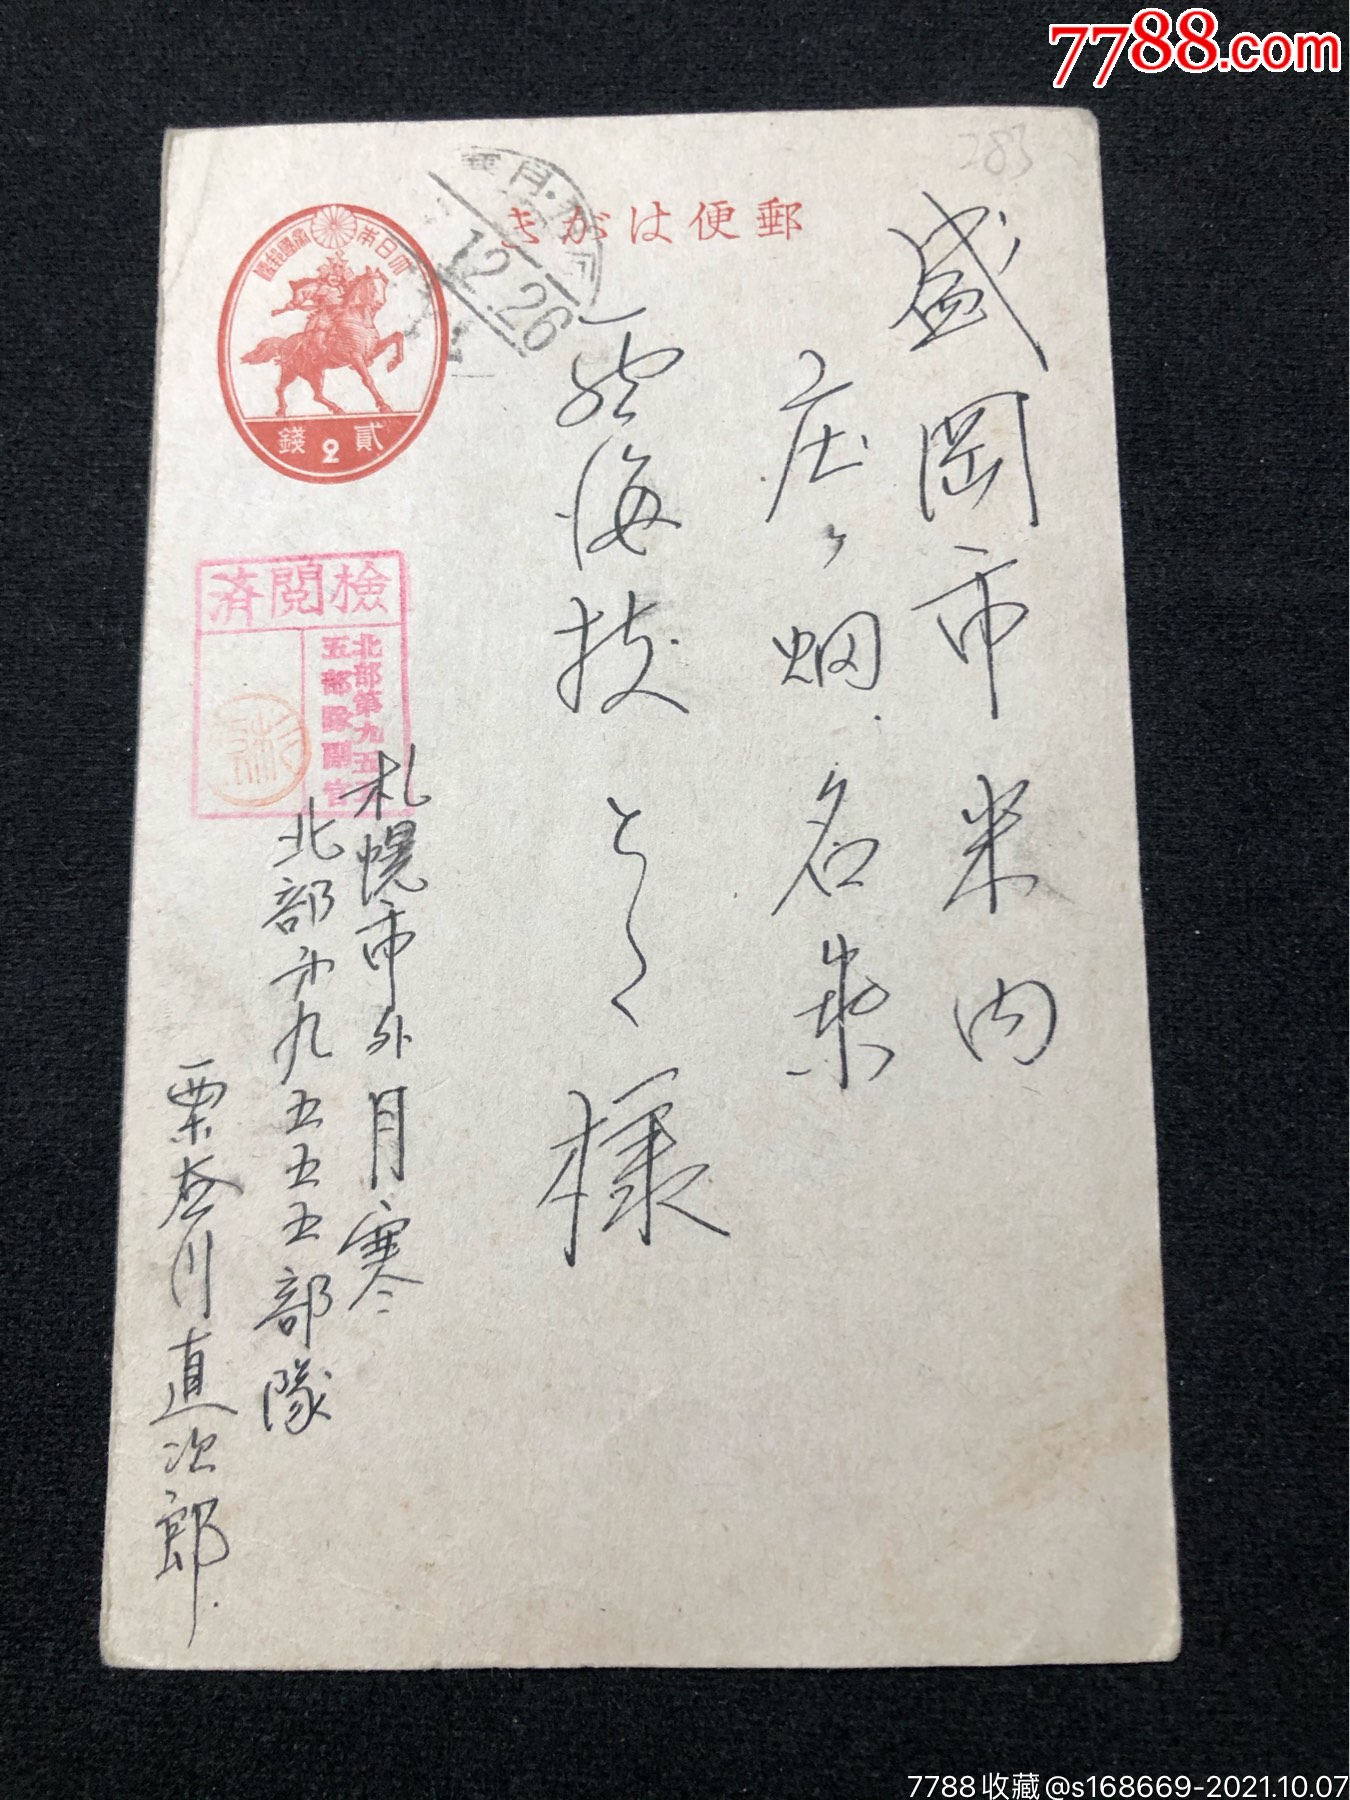 7788.com
283
郵便はがき
大日本帝國郵便
貳錢
2
12.26
盛岡市米内
庄ヶ畑名乗
様
検閲済
北部第九五五
五部隊副官
札幌市外月寒
北部第九五五五部隊
栗谷川直次郎
7788收藏@s168669-2021.10.07